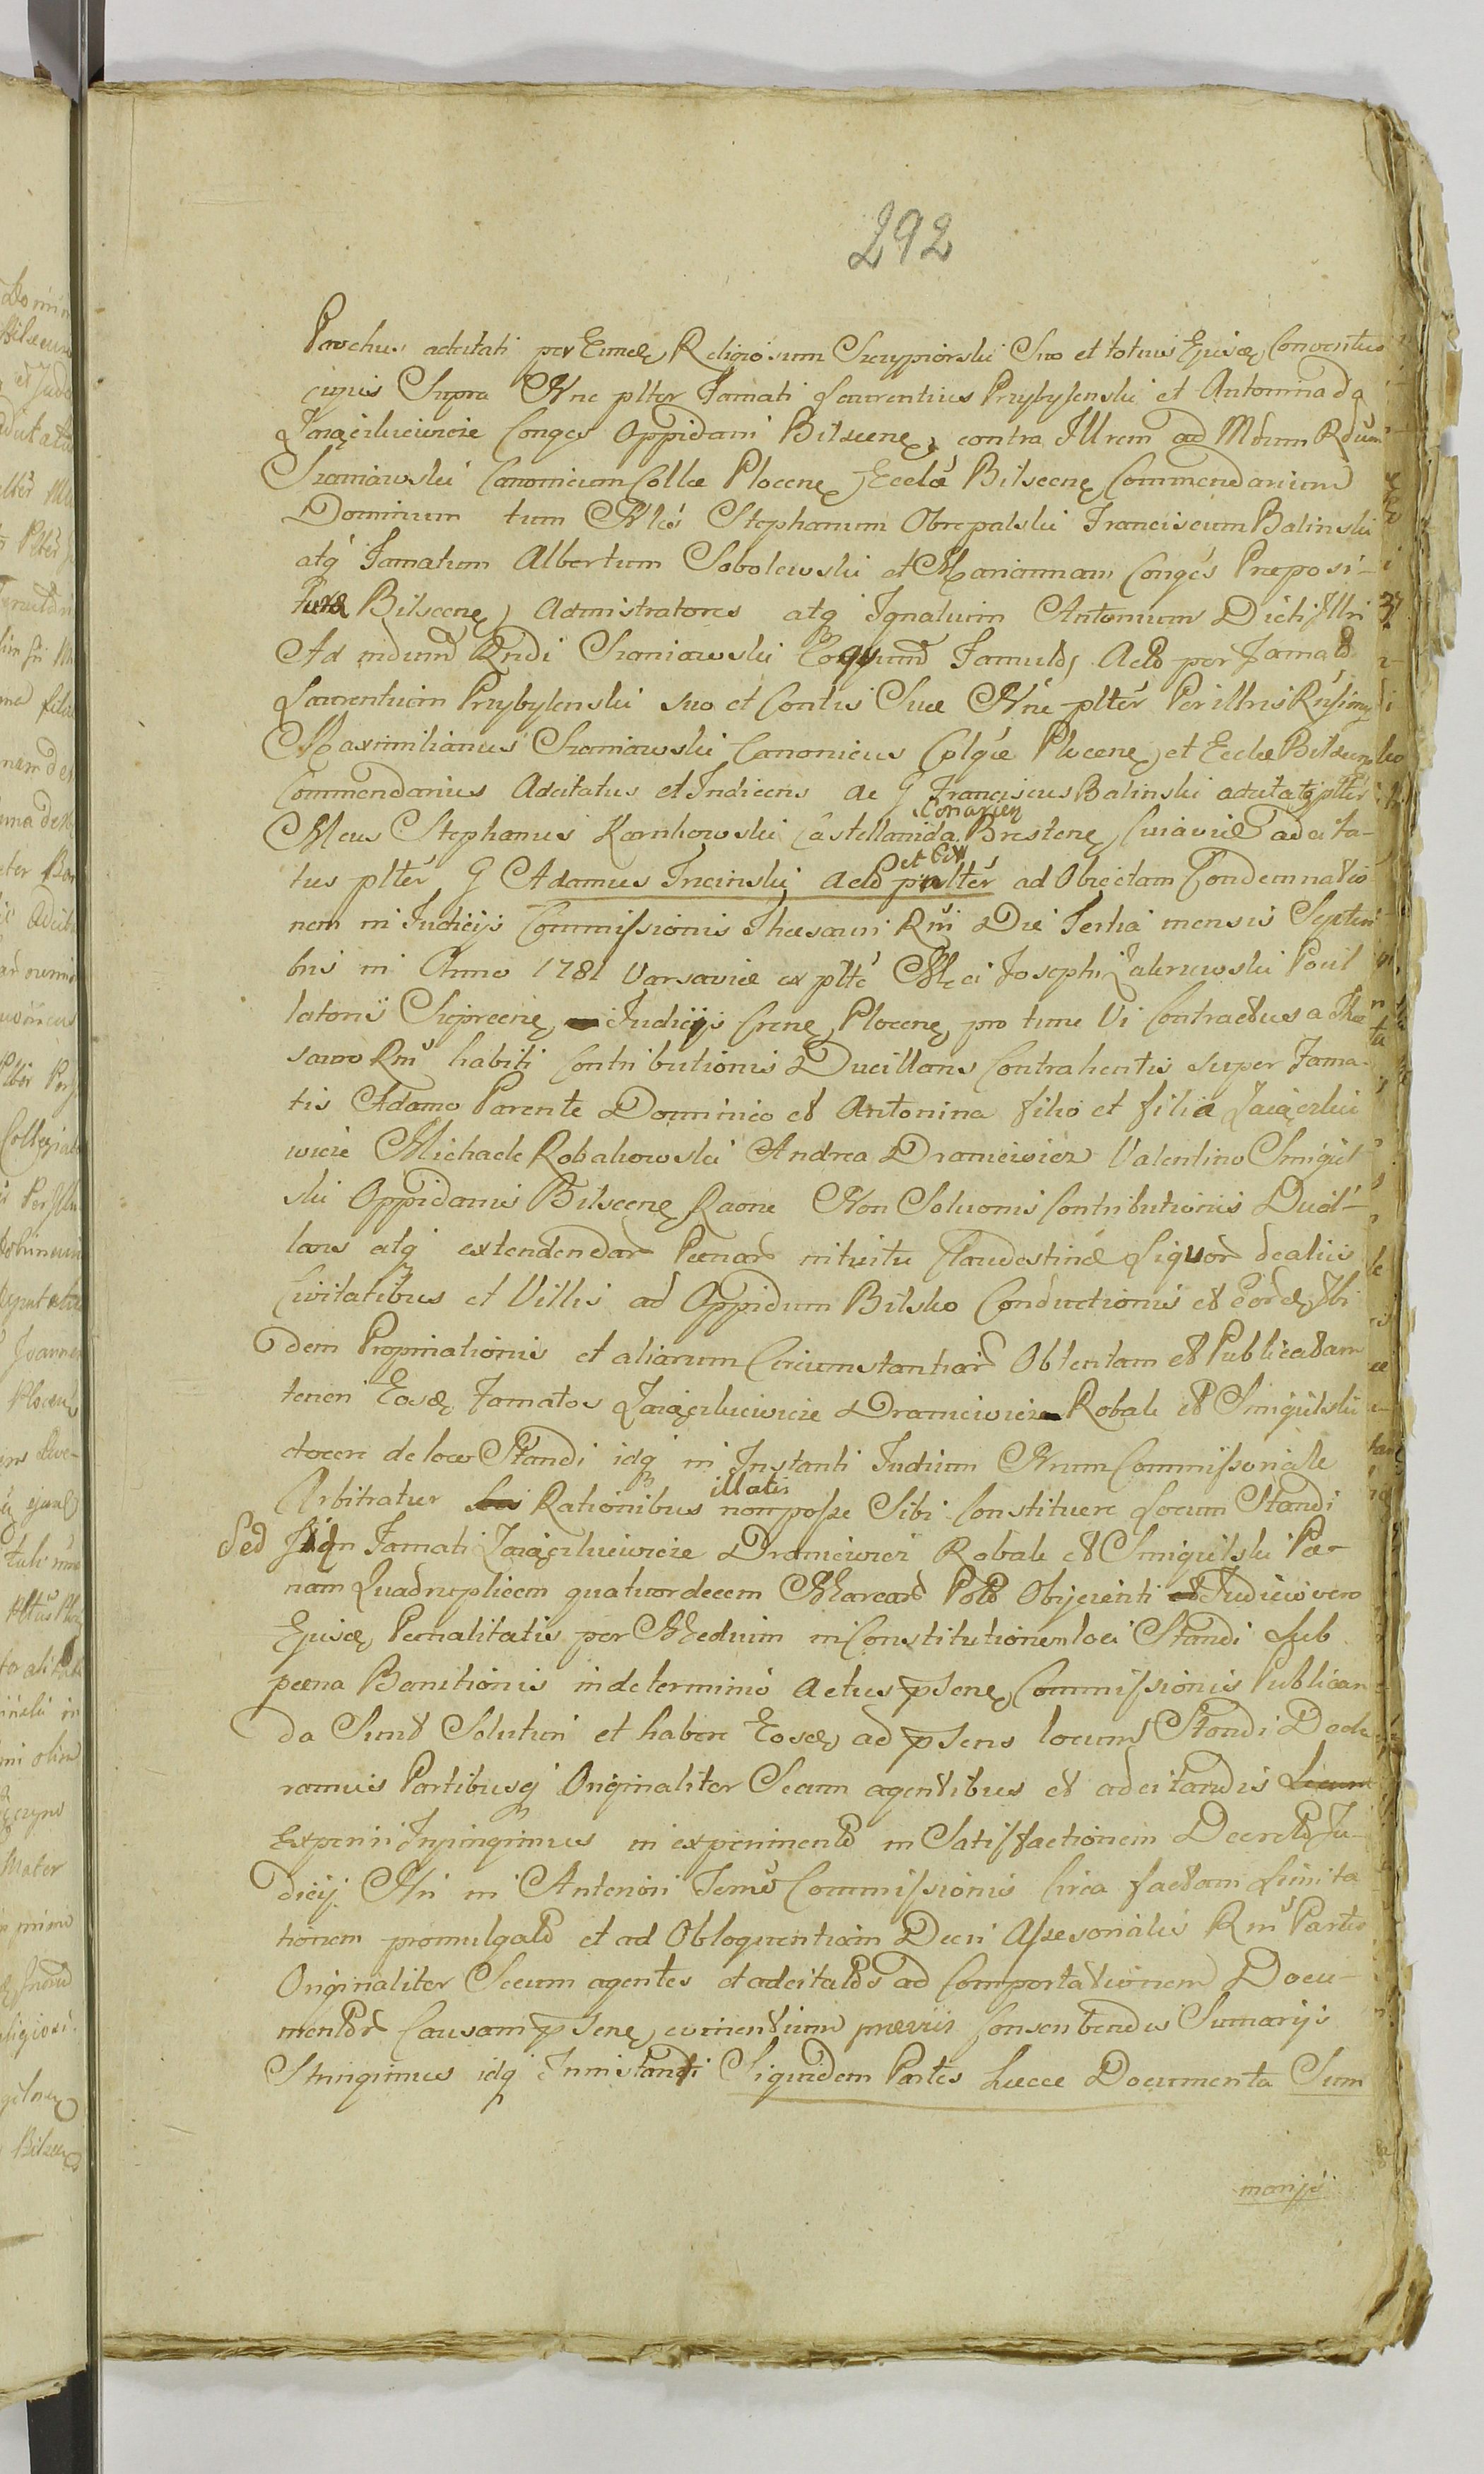 292
Parochus adcitati per Eundẽ Religiosum Szczypiorski Suo et totius Ejusdẽ Conventus
cujus Supra Nne plter Famati Laurentius Przybylenski et Antonina da
Zaiączkiewicze Conges Oppidani Bilscens, contra Illrem ad Mdum Rdum
Szaniawski Canonicum Colłæ Plocens, Ecclæ Bilscens Commendarium
Dominum tum Nles Stephanum Obrepalski Franciscum Balinski
atq Famatum Albertum Sobolewski et Mariannam Conges Præposi-
turæ Bilscens, Admistratores atq Ignatium Antonium Dicti Illri
Ad mdum Rndi Szaniawski Famulos Acto per Famatũ
Laurentium Przybylenski suo et Contis Suæ Nne plter Perillris Rssimus
Maximilianus Szaniawski Canonicus Colgiæ Plocens, et Ecclæ Bilscens
Commendarius Adcitatus et Indicens ac G Franciscus Balinski adcitatq plter
Conarien
Mcus Stephanus Karnkowski Castellanida Brestens, Cuiaviæ adcita-
et Civ
tus plter G Adamus Trcinski acto pnlter ad Objectam Condemnatio
nem in Judicijs Commissionis Thesauri Rni Die Tertia mensis Septem
bris in Anno 1781 Varsaviæ ex plte Mci Josephi Zalewski Pocil
latoris Sieprcens, Judicijs Crens, Plocens, pro tunc Vi Contractus a The
sauro Rni habiti Contributionis Ducillaris Contrahentis super Fama-
tis Adamo Parente Dominico et Antonina filio et filia Zaiączkie
wicze Michaele Robakowski Andrea Dramiewicz Valentino Smigiel
ski Oppidanis Bilscens, Raone Non Soluonis Contributionis Ducil-
laris atq extendendar Pœnar intuitu Clandestinæ Liquor de alijs
Civitatibus et Villis ad Oppidum Bilsko Conductionis et Eordẽ, Ibi
dem Propinationis et aliarum Circumstantiar Obtentam et Publicatam
teneri Eosdẽ, Famatos Zaiączkiewicze Dramiewicz Robak et Smigielski
docere de loco Standi idq in Instanti Judium Nrum Commissoriale
illatis
Arbitratur Rationibus non posse Sibi Constituere Locum Standi
Sed Siqn Famati Zaiączkiewicze Dramiewicz Robak et Smigielski Pœ-
nam Quadruplicem quatuordecem Marcar Pol Objicienti Judicio vero
Ejusdẽ, Pœnalitatis per Medium in Constitutionem loci Standi Sub
pœna Banitionis in determino actus pnsens, Commissionis Publican
da Sunt Soluturi et habere Eosdẽ, ad pnsens locum Standi Decla
ramus Partibusq Originaliter Secum agentibus et adcitandis Secum
Experiri Injungimus in experimento in Satisfactionem Decreto Ju-
dicij Nri in Anteriori Termo Commissionis Circa factam Limita
tionem promulgato et ad Obloquentiam Decri Assesorialis Rni Partes
Originaliter Secum agentes et adcitatos ad Comportationem Docu-
mentor Causam pnsens, eorientium præviis Conscribendis Sumarijs
Stringimus idq Inninstanti Siquidem Partes hæcce Documenta Sum
marijs